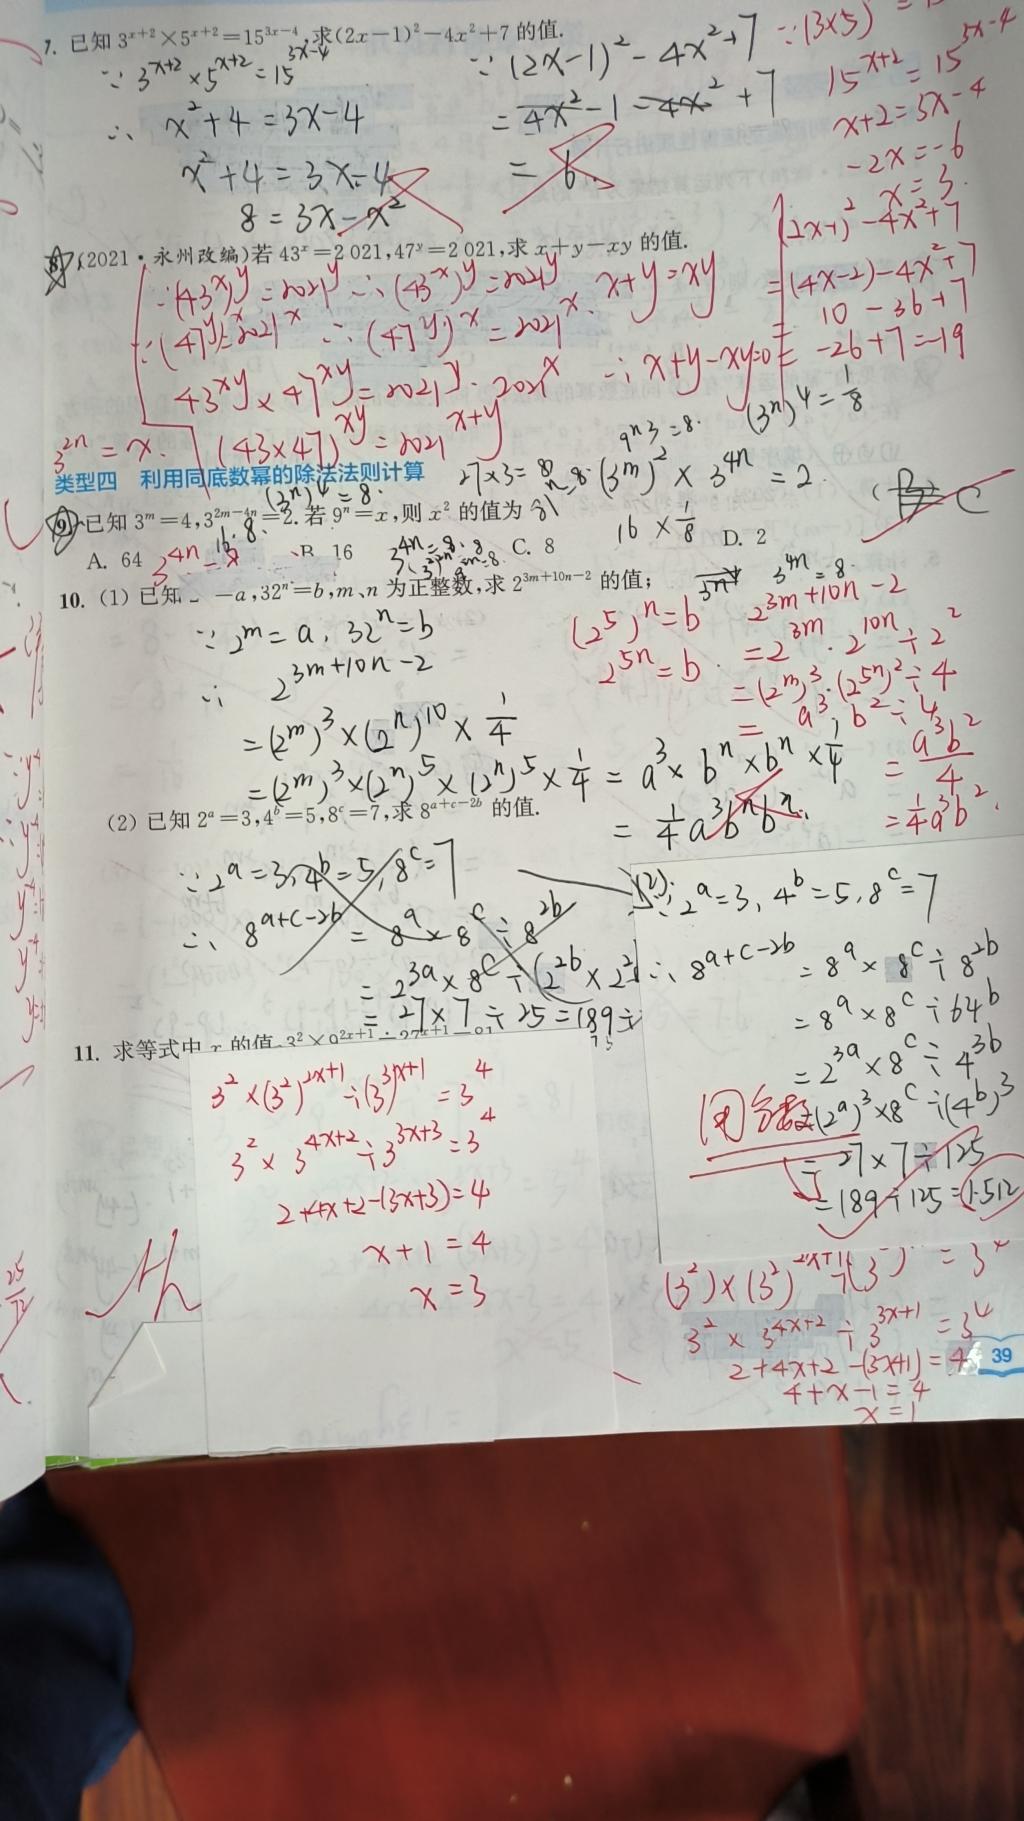 7. 已知 3^{x+2}×5^{x+2}=15^{3x-4},求(2x-1)²-4x²+7 的值.
∵ 3^{x+2}×5^{x+2}=15^{3x-4}
∴ x²+4=3x-4
x²+4=3x-4
8=3x-x²
∵ (2x-1)²-4x²+7
=4x²-1-4x²+7
=6.
∵(3×5)
15^{x+2}=15^{3x-4}
x+2=3x-4
-2x=-6
x=3.
(2x-1)²-4x²+7
=(4x-2)-4x²+7
= 10-36+7
= -26+7=-19
8. (2021·永州改编)若 43^x=2 021,47^y=2 021,求 x+y-xy 的值.
∵(43^x)^y=2021^y ∴(43^x)^y=2021^y
∵(47^y)^x=2021^x ∴(47^y)^x=2021^x. x+y=xy
43^{xy}×47^{xy}=2021^y·2021^x ∴x+y-xy=0
(43×47)^{xy}=2021^{x+y}
3^{2n}=x.
类型四 利用同底数幂的除法法则计算
9^n 3=8.
(3^n)^4=1/8
27×3=8
(3^m)²×3^{4n}=2
(3^n)^4=8.
9. 已知 3^m=4,3^{2m-4n}=2. 若 9^n=x,则 x² 的值为
C
16×1/8
A. 64 B. 16 C. 8 D. 2
3^{4n}=8.
10. (1) 已知 =a,32^n=b,m、n 为正整数,求 2^{3m+10n-2} 的值;
∵ 2^m=a, 32^n=b
∴ 2^{3m+10n-2}
=(2^m)³×(2^n)^{10}×1/4
=(2^m)³×(2^n)^5×(2^n)^5×1/4=a³×b^n×b^n×1/4
=1/4a³b^nb^n.
(2^5)^n=b
2^{5n}=b.
2^{3m+10n-2}
=2^{3m}·2^{10n}÷2²
=(2^m)³·(2^{5n})²÷4
= a³·b²÷4
=a³b²/4
=1/4a³b².
(2) 已知 2^a=3,4^b=5,8^c=7,求 8^{a+c-2b} 的值.
∵2^a=3,4^b=5,8^c=7
∴ 8^{a+c-2b}=8^a×8^c÷8^{2b}
=2^{3a}×8^c÷(2^{2b}×2²
=27×7÷25=189÷
(2)∵2^a=3, 4^b=5, 8^c=7
∴ 8^{a+c-2b}=8^a×8^c÷8^{2b}
=8^a×8^c÷64^b
=2^{3a}×8^c÷4^{3b}
=(2^a)³×8^c÷(4^b)³
用分数
=27×7÷125
=189÷125=1.512
11. 求等式中 x 的值:3²×9^{2x+1}÷27^{x+1}=81
3²×(3²)^{2x+1}÷(3³)^{x+1}=3⁴
3²×3^{4x+2}÷3^{3x+3}=3⁴
2+4x+2-(3x+3)=4
x+1=4
x=3
(3²)×(3²)^{2x+1}÷(3 =3⁴
3²×3^{4x+2}÷3^{3x+1}=3⁴
2+4x+2-(3x+1)=4
4+x-1=4
x=1
39